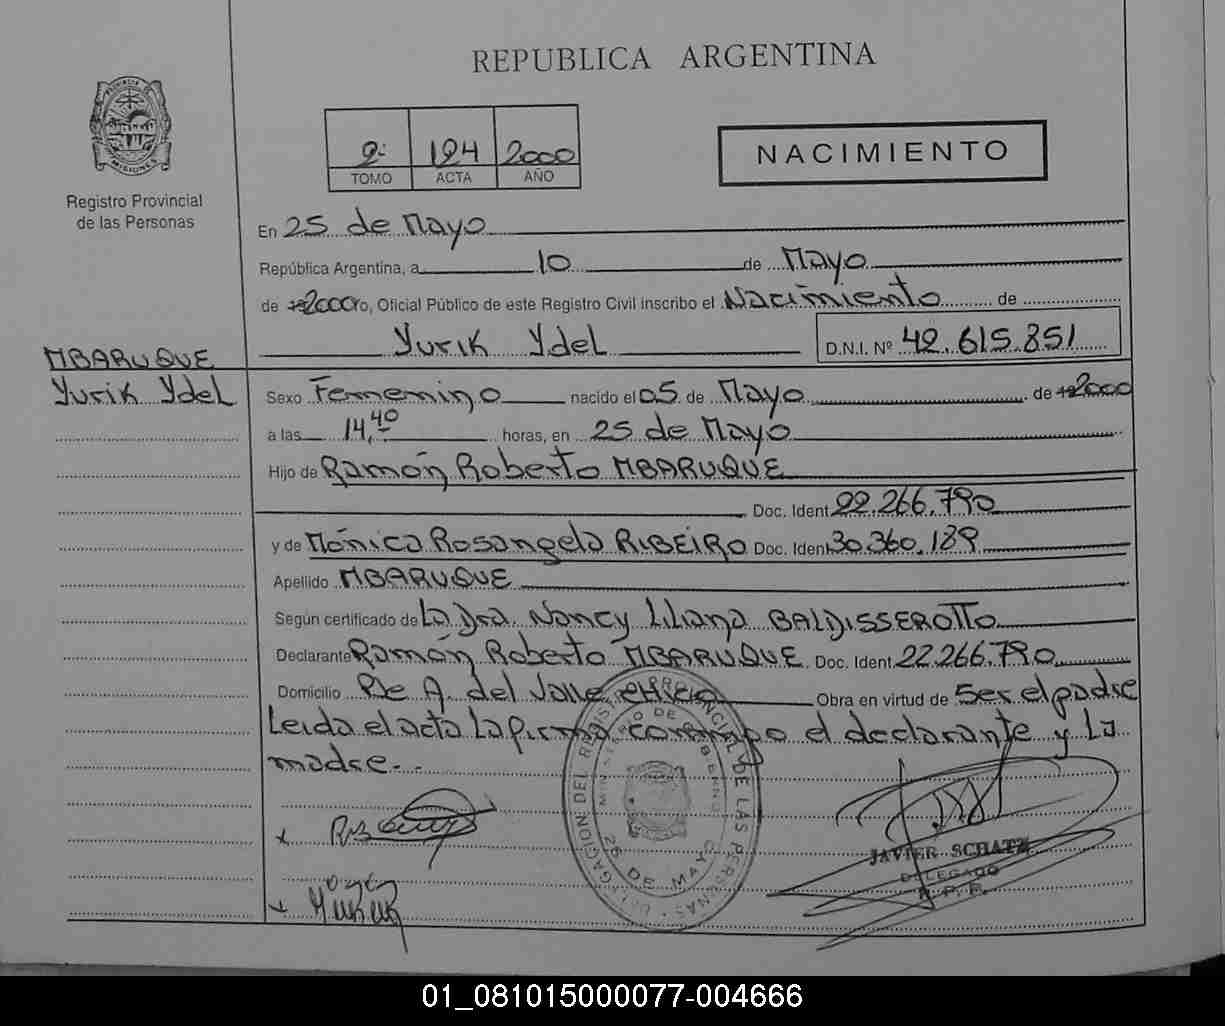 REPUBLICA ARGENTINA
PROVINCIA DE MISIONES
Registro Provincial
de las Personas
2º 124 2000
TOMO ACTA AÑO
NACIMIENTO
En 25 de Mayo
República Argentina, a 10 de Mayo
de 2000 Yo, Oficial Público de este Registro Civil inscribo el Nacimiento de
Yurik Ydel D.N.I. Nº 42.615.851
MBARUQUE
Yurik Ydel
Sexo Femenino nacido el 05 de Mayo de 2000
a las 14,40 horas, en 25 de Mayo
Hijo de Ramón Roberto MBARUQUE
Doc. Ident 22.266.790
y de Mónica Rosangela RIBEIRO Doc. Ident 30.360.189
Apellido MBARUQUE
Según certificado de La Dra. Nancy Liliana BALDISSEROTTO
Declarante Ramón Roberto MBARUQUE Doc. Ident. 22.266.790
Domicilio Pje A. del Valle chico Obra en virtud de Ser el padre
Leida el acta La firma conmigo el declarante y La
madre..
DELEGACION DEL REGISTRO PROVINCIAL DE LAS PERSONAS
MINISTERIO DE GOBIERNO
25 DE MAYO
JAVIER SCHATZ
DELEGADO
R. P. P.
01_081015000077-004666